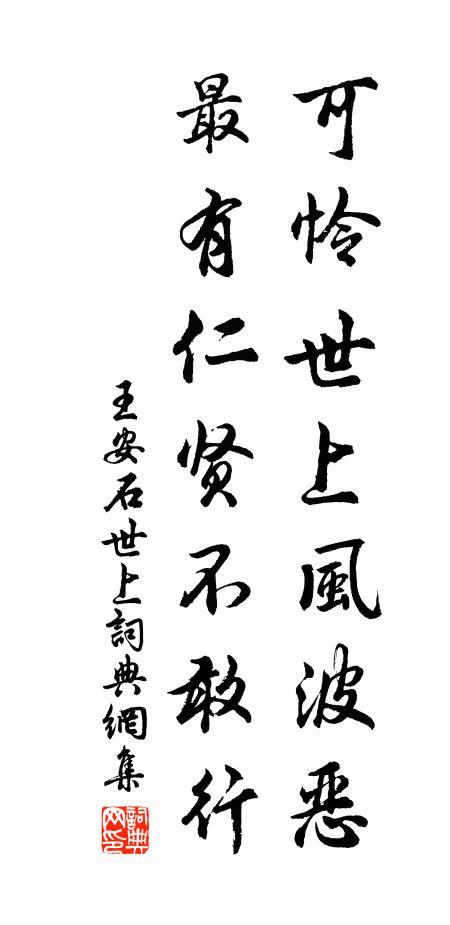 可怜世上風波恶
最有仁贤不敢行
王安石世上詞典網集
詞典网印